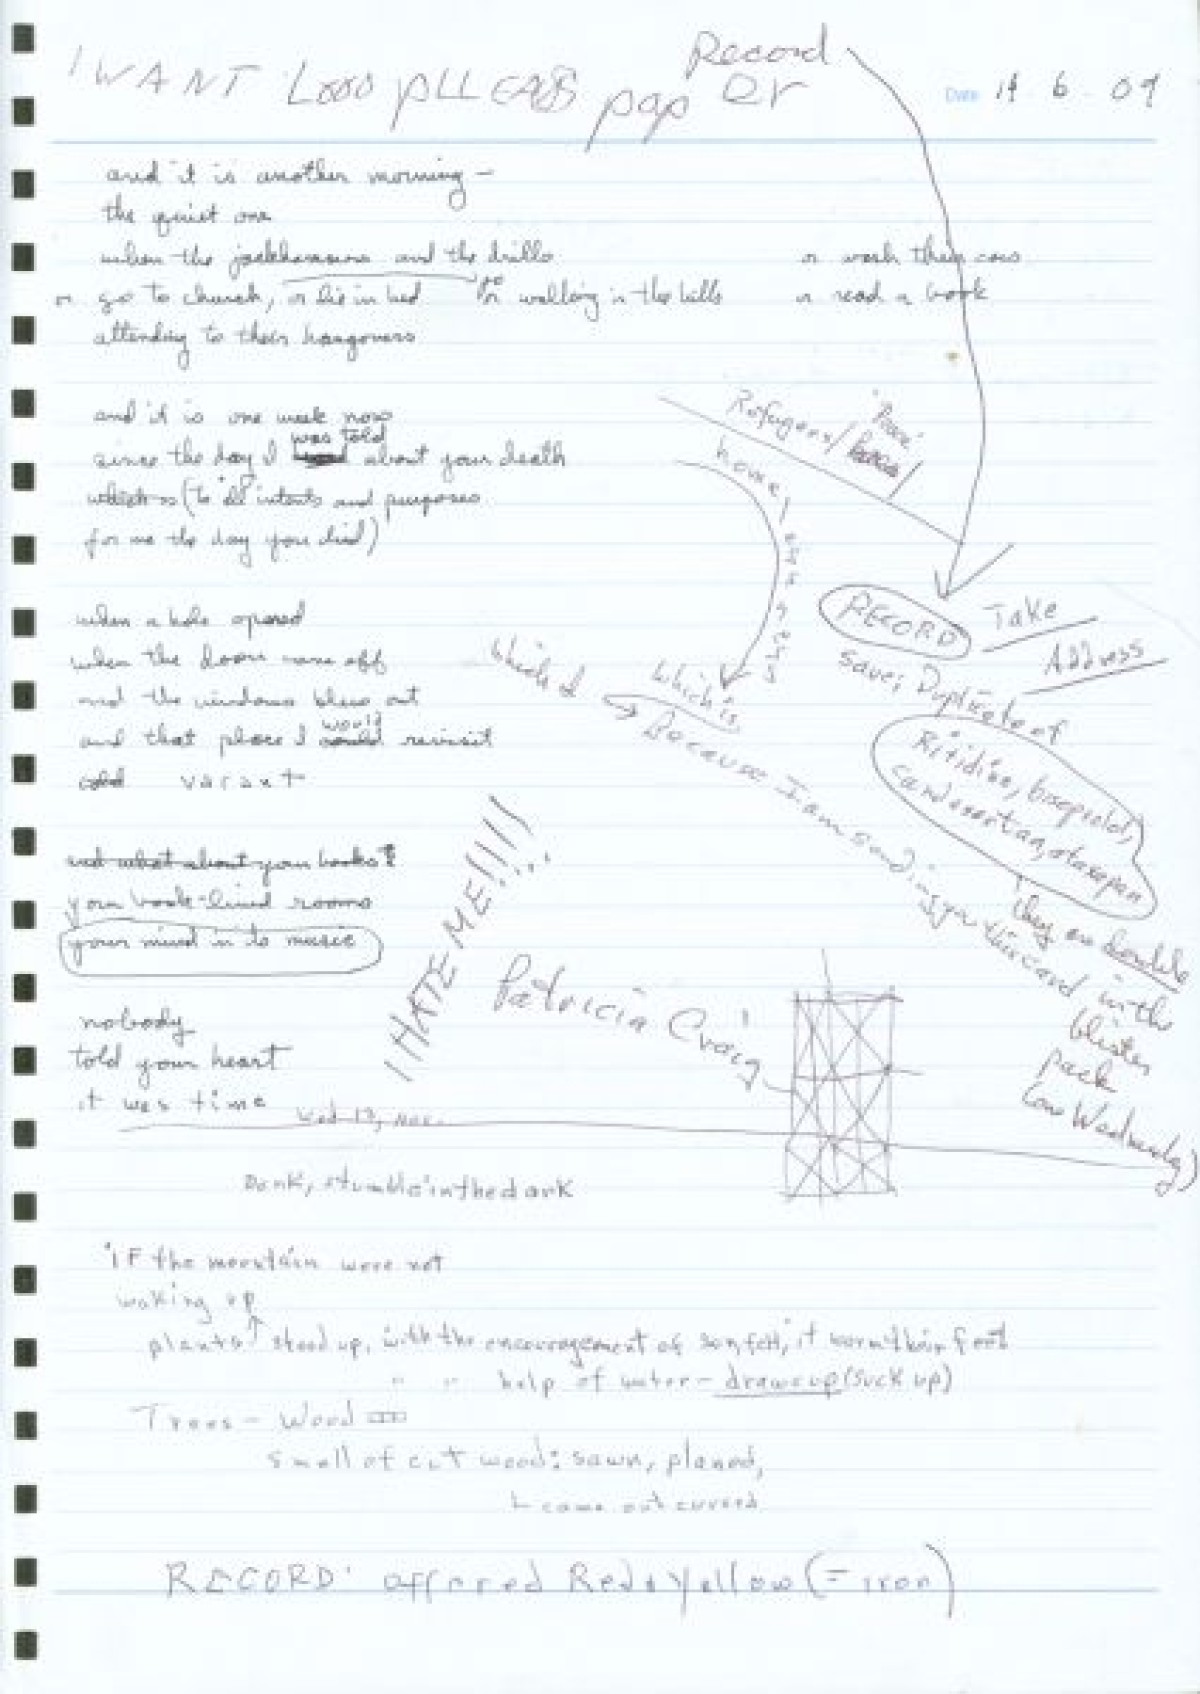 I WANT Looo pLLEASS pap er
Record
Date 14 6 09
and it is another morning –
the quiet one
when the jackhammers and the drills
or wash their cars
or go to church, or lie in bed or walking in the hills
or read a book
attending to their hangovers
and it is one week now
since the day I was told about your death
which is (to all intents and purposes
for me the day you died)
Refugees/ 'Peace'
house,
when a hole opened
when the door came off
and the windows blew out
and that place I would revisit
vacant
RECORD
Take
Address
Save; Duplicate of
which I
which is
Because I am sending you this card in the
they are double
blister
pack
(on Wednesday)
and what about your books?
your book-lined rooms
your mind in to music
I HATE ME!!!!!
Patricia Craig
nobody
told your heart
it was time
Wed 13, Nov.
Donk, stumble in the dark
'IF the mountain were not
waking up
plants stood up, with the encouragement of it warm their feet
" " help of water – draws up (suck up)
Trees – Wood
smell of cut wood: sawn, planed,
came out curved
RECORD: offered Red & Yellow (= iron)